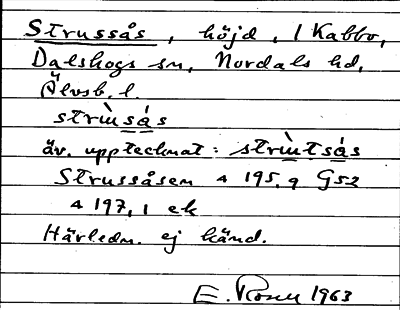 Strussås, höjd, 1 Kabbo,
Dalskogs sn, Nordals hd,
Älvsb. l.
strùsás
äv. upptecknat: strùtsás
Strussåsen a 195, 9 G52
a 197, 1 ek
Härledn. ej känd.
E. Rosén 1963